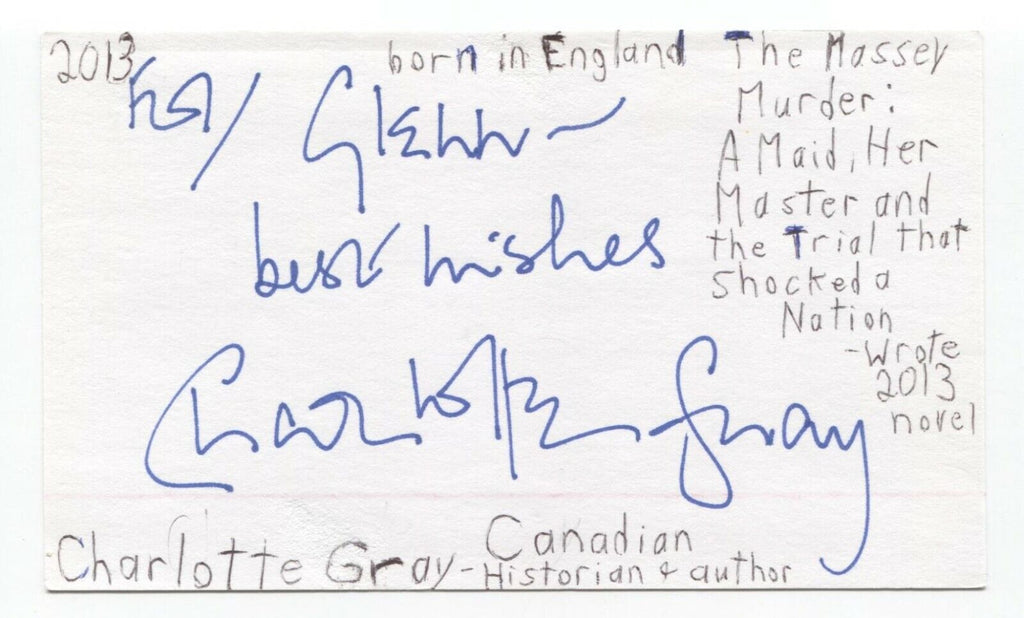 2013
born in England
The Massey
Murder:
A Maid, Her
Master and
the Trial that
Shocked a
Nation
-Wrote
2013
novel
For Glenn-
best wishes
Charlotte Gray
Charlotte Gray- Canadian
Historian & author